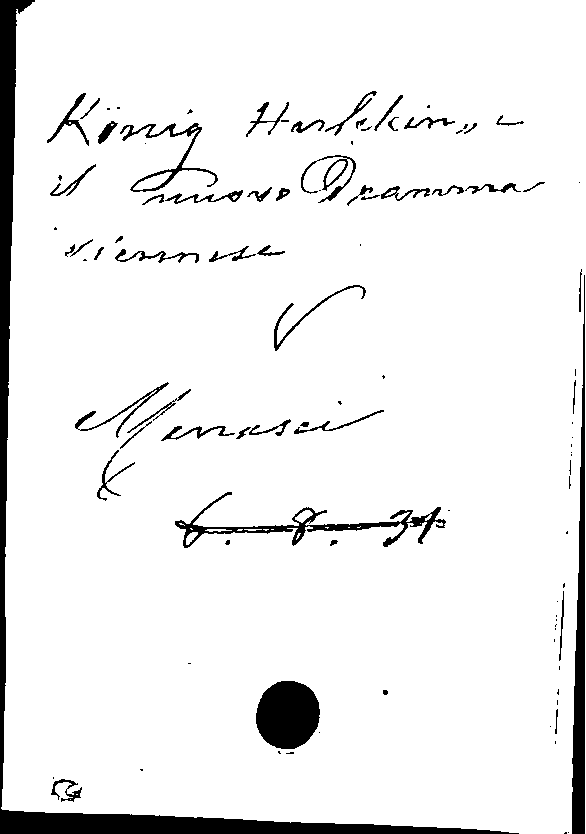 König Harlekin„ –
il nuovo Dramma
viennese
V
Menasci
6. 8. 34